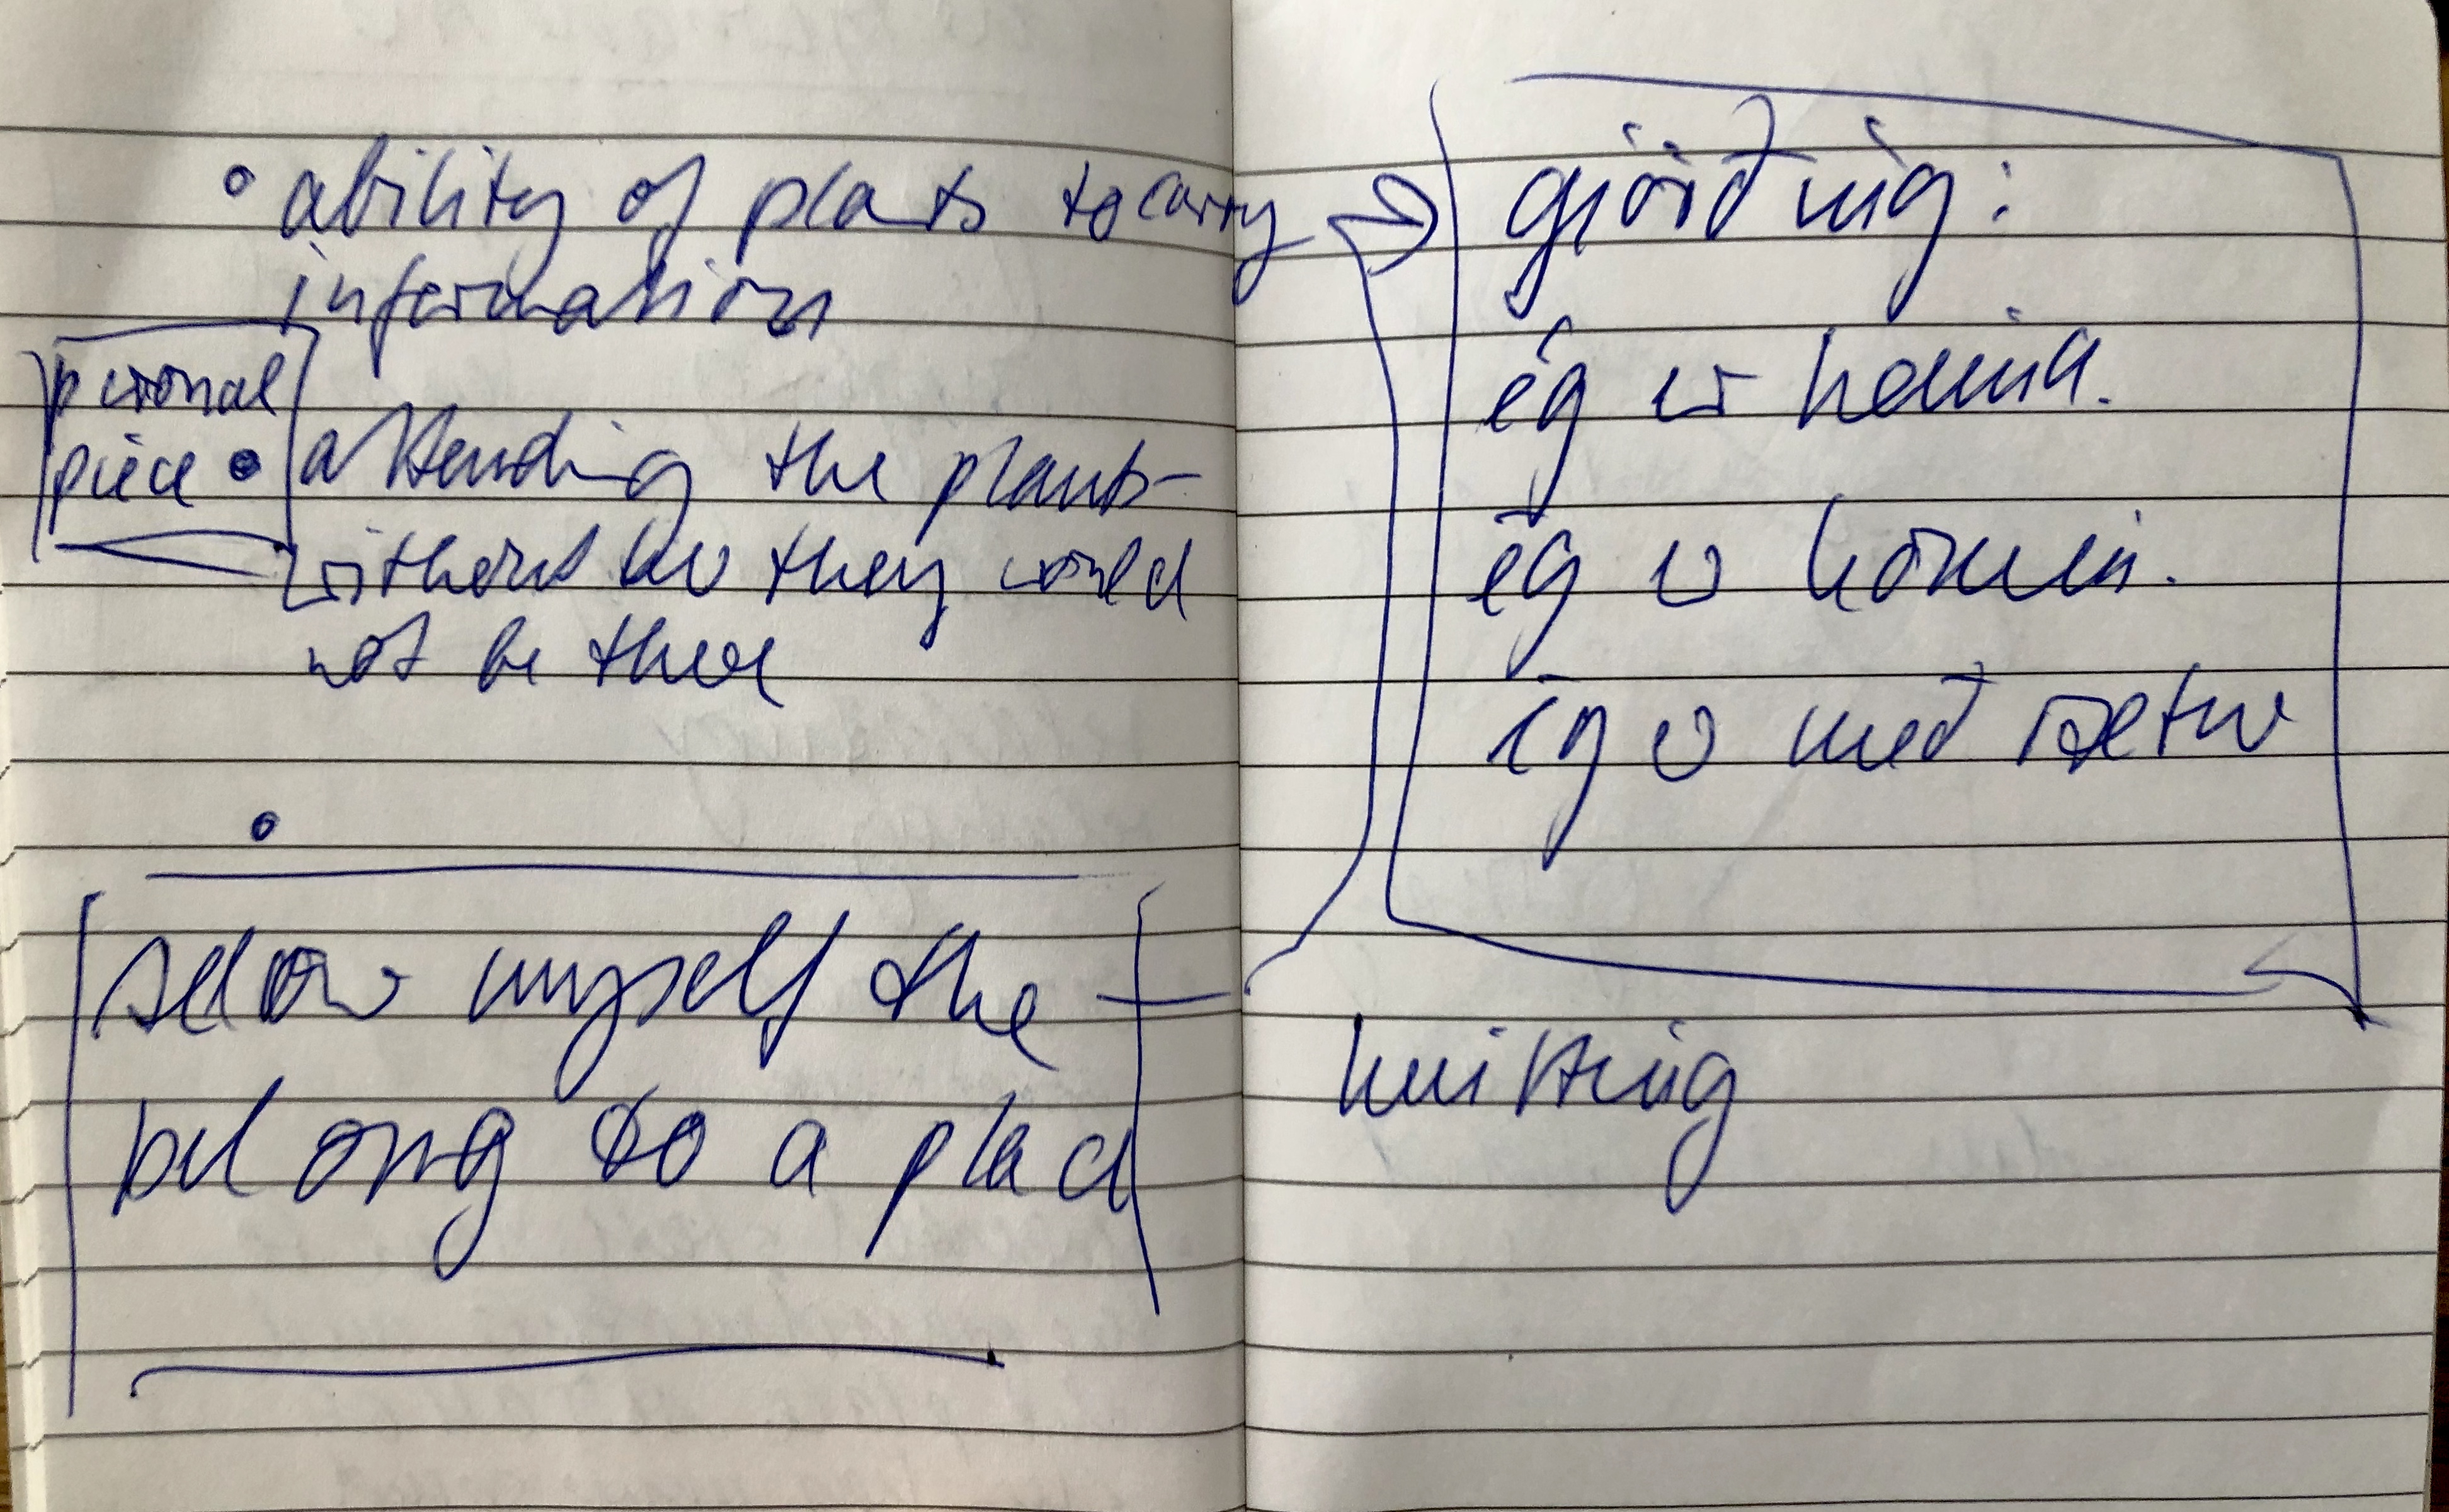 • ability of plants to carry
information
personal
piece • attending the plants -
without they would
not be there
•
allow myself the
belong to a place
ég er heima.
ég er komin.
ég er með rætur
knitting